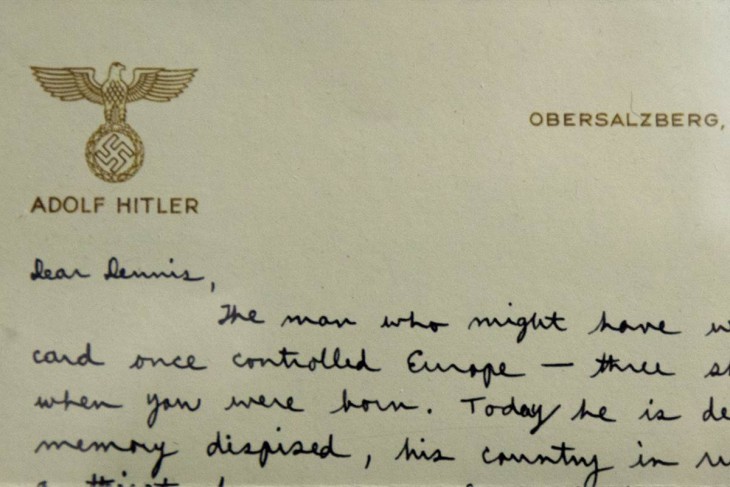 OBERSALZBERG,
ADOLF HITLER
Dear Dennis,
The man who might have
card once controlled Europe — three
when you were born. Today he is
memory dispised, his country in